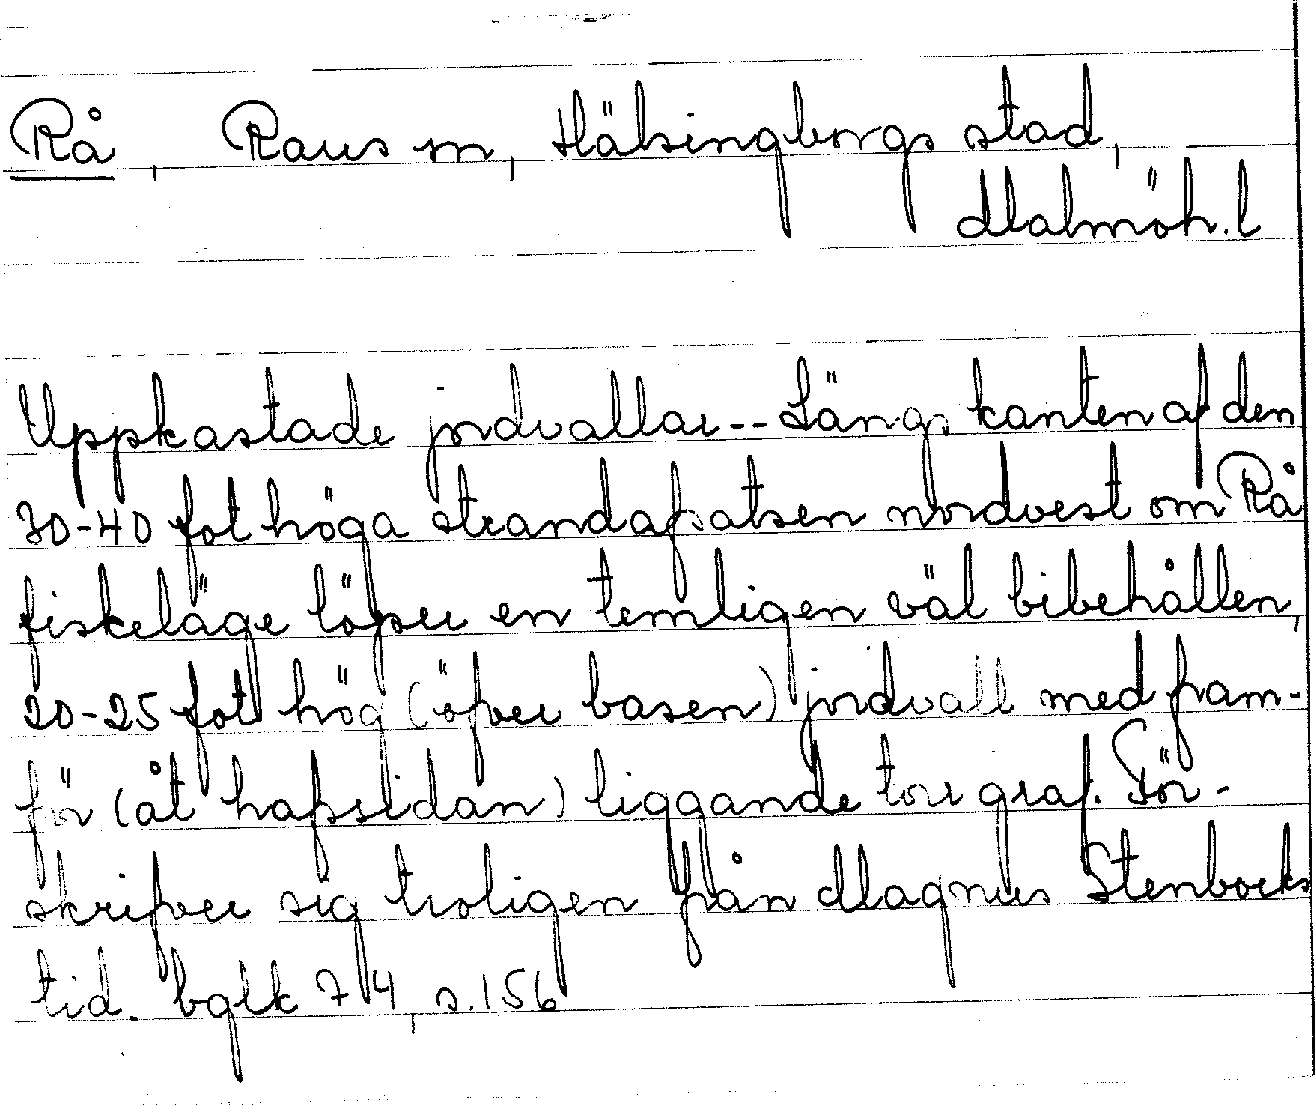 Rå, Raus sn, Hälsingborgs stad,
Malmöh.l
Uppkastade jordvallar -- Längs kanten af den
30-40 fot höga strandafsatsen nordvest om Rå
fiskeläge löper en temligen väl bibehållen,
20-25 fot hög (öfver basen) jordvall med fram-
för (åt hafssidan) liggande torr graf. För-
skrifver sig troligen från Magnus Stenbocks
tid. bglk 74, s.156